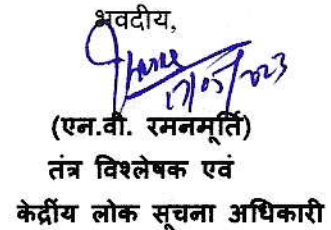 भवदीय,
17/05/2023
(एन.वी. रमनमूर्ति)
तंत्र विश्लेषक एवं
केद्रींय लोक सूचना अधिकारी